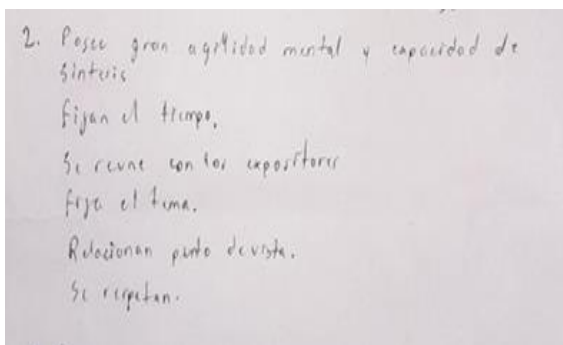 2. Posee gran agilidad mental y capacidad de
síntesis
Fijan el tiempo.
Se reune con los expositores
fija el tema.
Relacionan punto de vista.
Se respetan.